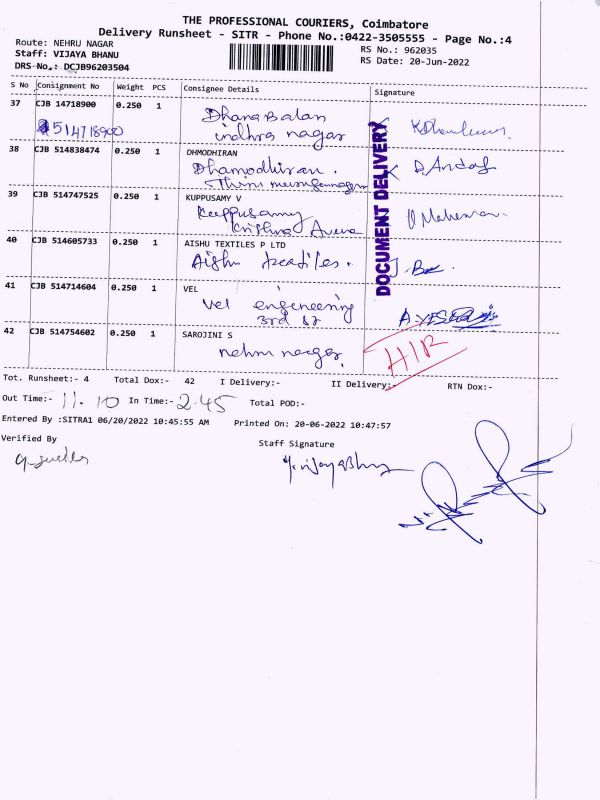 THE PROFESSIONAL COURIERS, Coimbatore
Delivery Runsheet - SITR - Phone No.:0422-3505555 - Page No.:4
Route: NEHRU NAGAR
Staff: VIJAYA BHANU
DRS No.: DCJB96203504
RS No.: 962035
RS Date: 20-Jun-2022
S No Consignment No Weight PCS Consignee Details Signature
37 CJB 14718900 0.250 1
514718900
Dhanabalan
indhra nagar
38 CJB 514838474 0.250 1 DHMODHIRAN
Dhamodhiran.
39 CJB 514747525 0.250 1 KUPPUSAMY V
Kuppusamy
Krishna Avenue
40 CJB 514605733 0.250 1 AISHU TEXTILES P LTD
Aishu textiles.
41 CJB 514714604 0.250 1 VEL
Vel engineering
3rd st
42 CJB 514754602 0.250 1 SAROJINI S
nehru nagar.
H/R
DOCUMENT DELIVERY
Tot. Runsheet:- 4 Total Dox:- 42 I Delivery:- II Delivery:- RTN Dox:-
Out Time:- 11.10 In Time:- 2.45 Total POD:-
Entered By :SITRA1 06/20/2022 10:45:55 AM Printed On: 20-06-2022 10:47:57
Verified By
Staff Signature